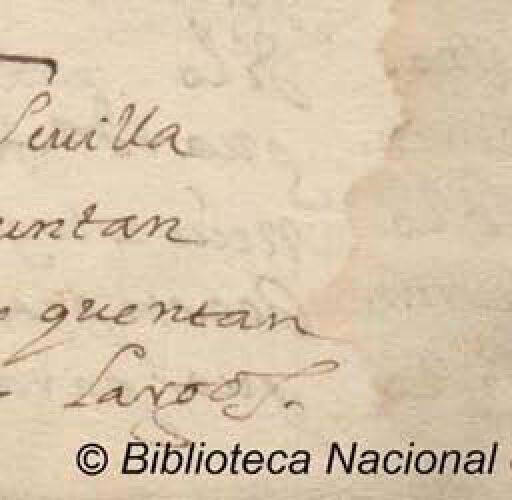 Seuilla
untan
quentan
© Biblioteca Nacional